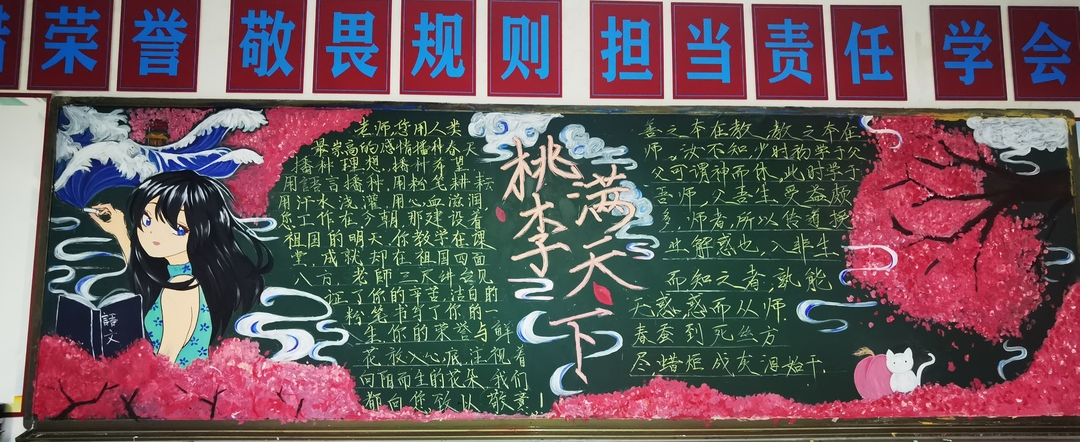 荣誉 敬畏规则 担当责任 学会
老师,您用人类
最崇高的感情播种春天
播种理想,播种希望
用語言播种,用粉笔耕耘
用汗水浇灌,用心血滋润,
您工作在一朝,那建设着
祖国的明天,你教学在课
堂,成就却在祖国四面
八方,老師三尺讲台见
证了你的辛苦,洁白的
粉笔书写了你的一
生,你的荣誉与鲜
花放入心底,注视着
向阳而生的花朵,我们
都向您致以敬意!
桃李
满天下
善之本在教,教之本在
师。汝不知,少时初学于父
父可谓神而依,此时学于
吾师,父妻生,受益颇
多,师者,所以传道授
业解惑也,人非生
而知之者,孰能
无惑,惑而从师
春蚕到死丝方
尽,蜡炬成灰泪始干
語文